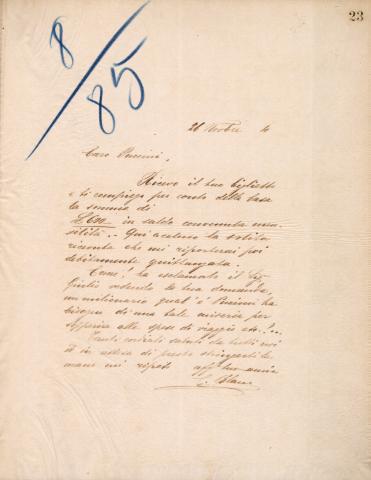 23
8/85
26 Novbre
Caro Puccini,
Ricevo il tuo biglietto
e ti compiego per conto della Casa
la somma di
in saldo convenuta men-
silità. - Qui acclusa la solita
ricevuta che mi riporterai poi
debitamente quitanzata.
Come! ha esclamato il Sig.
Giulio vedendo la tua domanda,
un milionario qual'è Puccini ha
bisogno di una tale miseria per
sopperire alle spese di viaggio etc.!...
Tanti cordiali saluti da tutti noi
e in attesa di presto stringerti la
mano mi ripeto aff. tuo amico